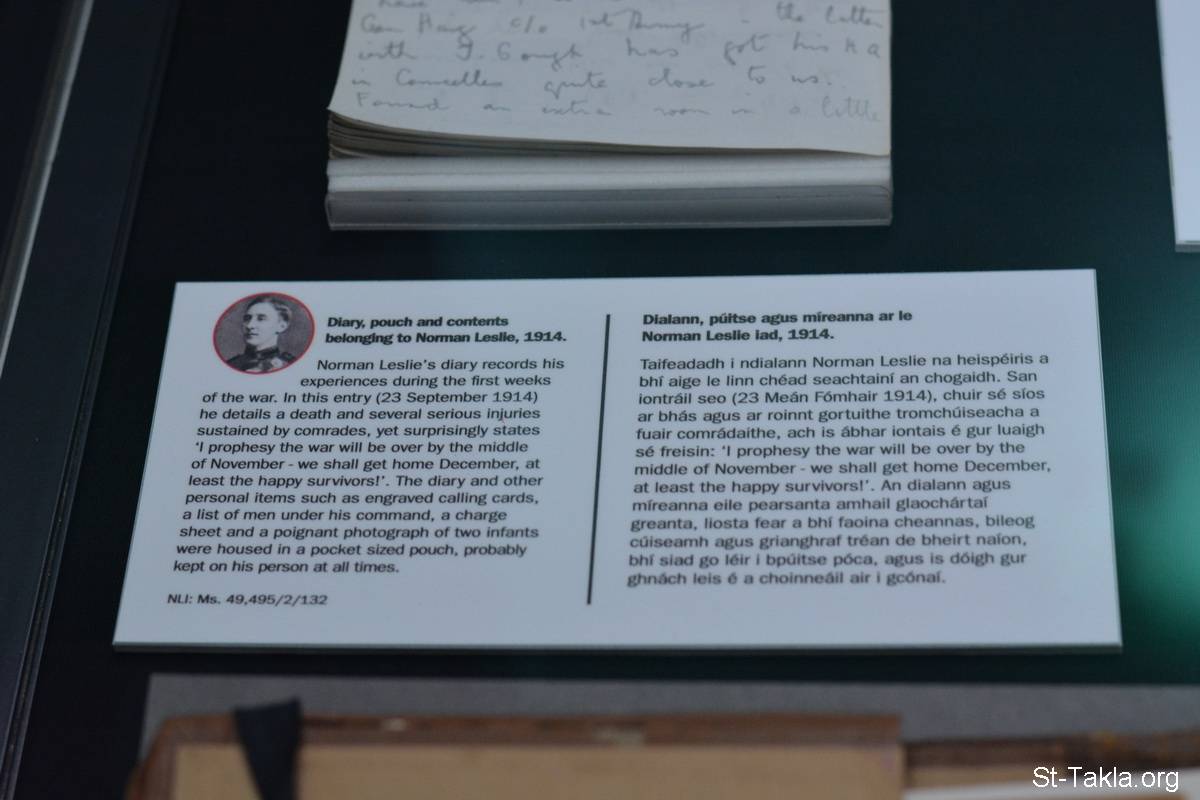 Gen Haig c/o 1st Army - the latter
with J. Gough has got his H Q
in Courcelles quite close to us.
Found an extra room in a little
Diary, pouch and contents
belonging to Norman Leslie, 1914.
Norman Leslie's diary records his
experiences during the first weeks
of the war. In this entry (23 September 1914)
he details a death and several serious injuries
sustained by comrades, yet surprisingly states
'I prophesy the war will be over by the middle
of November - we shall get home December, at
least the happy survivors!'. The diary and other
personal items such as engraved calling cards,
a list of men under his command, a charge
sheet and a poignant photograph of two infants
were housed in a pocket sized pouch, probably
kept on his person at all times.
NLI: Ms. 49,495/2/132
Dialann, púitse agus míreanna ar le
Norman Leslie iad, 1914.
Taifeadadh i ndialann Norman Leslie na heispéiris a
bhí aige le linn chéad seachtainí an chogaidh. San
iontráil seo (23 Meán Fómhair 1914), chuir sé síos
ar bhás agus ar roinnt gortuithe tromchúiseacha a
fuair comrádaithe, ach is ábhar iontais é gur luaigh
sé freisin: 'I prophesy the war will be over by the
middle of November - we shall get home December,
at least the happy survivors!'. An dialann agus
míreanna eile pearsanta amhail glaochártaí
greanta, liosta fear a bhí faoina cheannas, bileog
cúiseamh agus grianghraf tréan de bheirt naíon,
bhí siad go léir i bpúitse póca, agus is dóigh gur
ghnách leis é a choinneáil air i gcónaí.
St-Takla.org